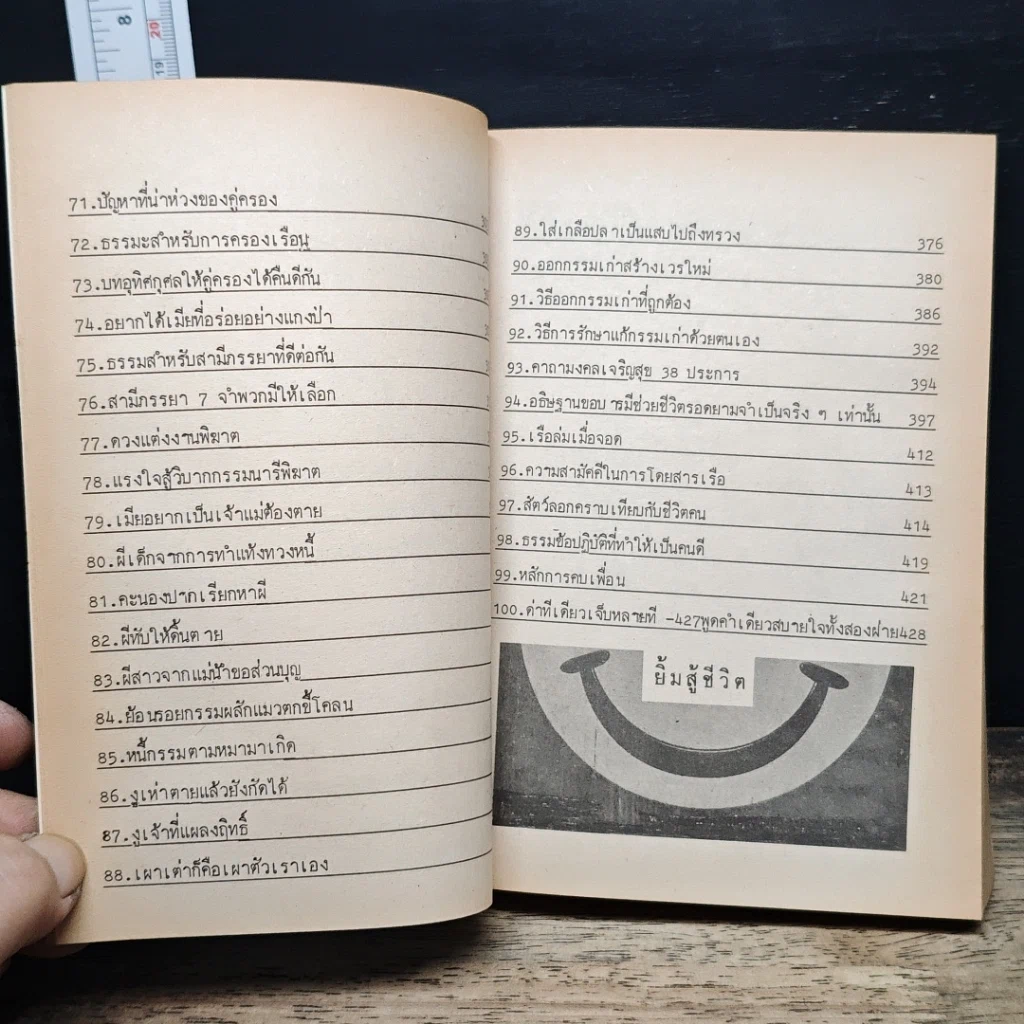 8
20
19
71.ปัญหาที่น่าห่วงของคู่ครอง
72.ธรรมะสำหรับการครองเรือน
73.บทอุทิศกุศลให้คู่ครองได้คืนดีกัน
74.อยากได้เมียที่อร่อยอย่างแกงป่า
75.ธรรมสำหรับสามีภรรยาที่ดีต่อกัน
76.สามีภรรยา 7 จำพวกมีให้เลือก
77.ดวงแต่งงานพิฆาต
78.แรงใจสู้วิบากกรรมนารีพิฆาต
79.เมียอยากเป็นเจ้าแม่ต้องตาย
80.ผีเด็กจากการทำแท้งทวงหนี้
81.คะนองปากเรียกหาผี
82.ผีทับให้ดิ้นตาย
83.ผีสาวจากแม่น้ำขอส่วนบุญ
84.ย้อนรอยกรรมผลักแมวตกขี้โคลน
85.หนี้กรรมตามหมามาเกิด
86.งูเห่าตายแล้วยังกัดได้
87.งูเจ้าที่แผลงฤทธิ์
88.เผาเต่าก็คือเผาตัวเราเอง
89.ใส่เกลือปลาเป็นแสบไปถึงทรวง 376
90.ออกกรรมเก่าสร้างเวรใหม่ 380
91.วิธีออกกรรมเก่าที่ถูกต้อง 386
92.วิธีการรักษาแก้กรรมเก่าด้วยตนเอง 392
93.คาถามงคลเจริญสุข 38 ประการ 394
94.อธิษฐานขอบารมีช่วยชีวิตรอดยามจำเป็นจริง ๆ เท่านั้น 397
95.เรือล่มเมื่อจอด 412
96.ความสามัคคีในการโดยสารเรือ 413
97.สัตว์ลอกคราบเทียบกับชีวิตคน 414
98.ธรรมข้อปฏิบัติที่ทำให้เป็นคนดี 419
99.หลักการคบเพื่อน 421
100.ด่าทีเดียวเจ็บหลายที -427พูดคำเดียวสบายใจทั้งสองฝ่าย428
ยิ้มสู้ชีวิต